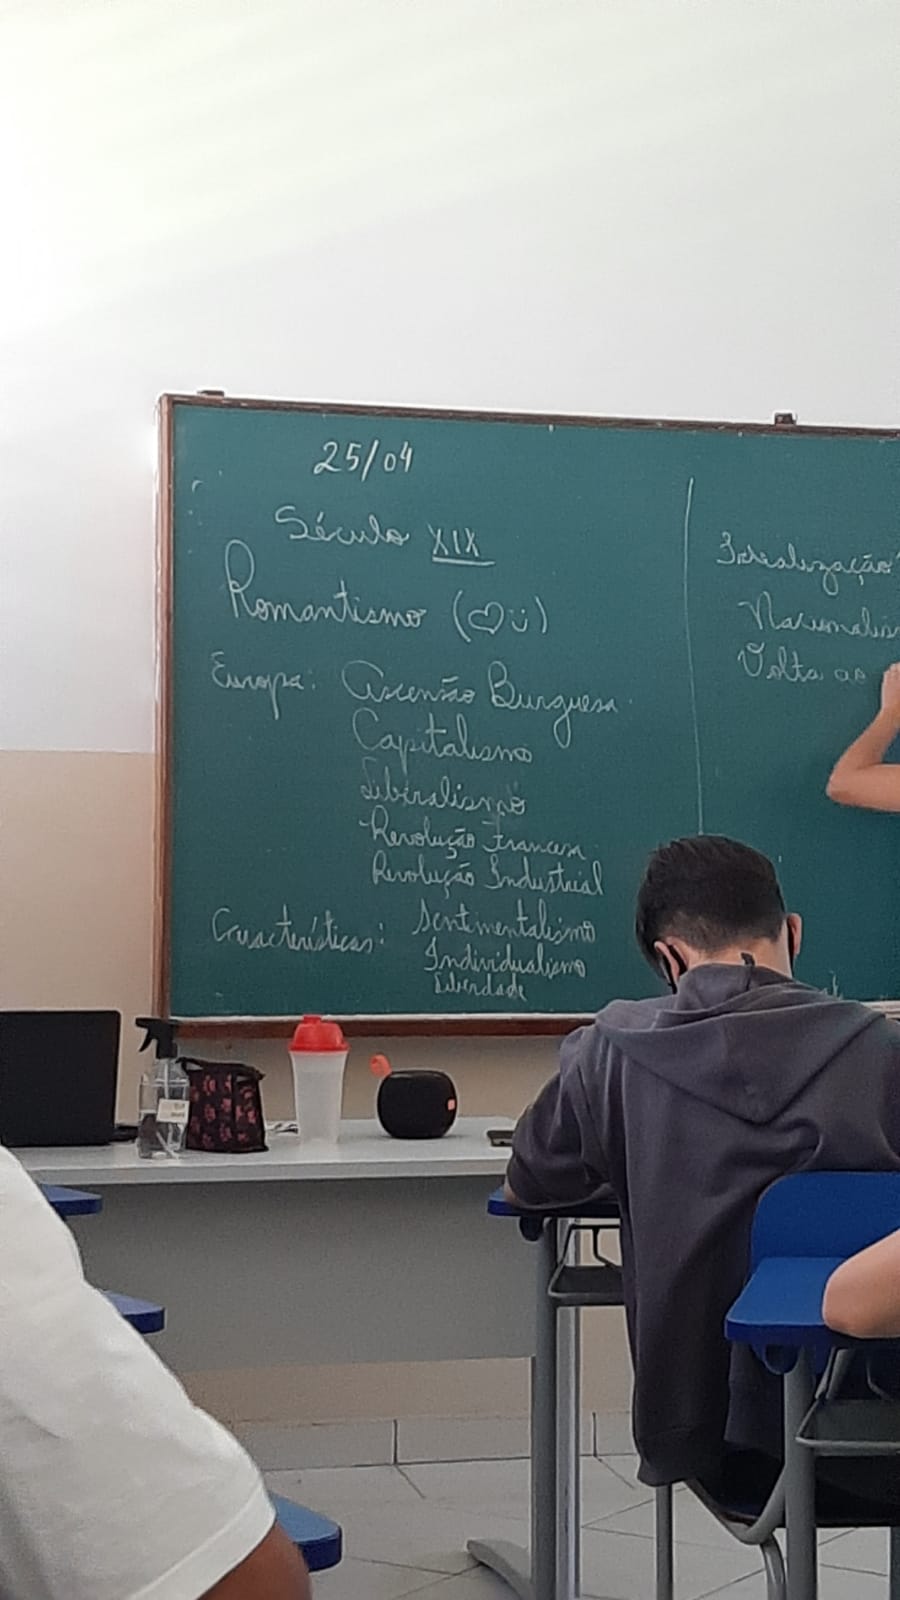 25/04
Século XIX
Romantismo (♡ü)
Europa: Ascensão Burguesa.
Capitalismo
Liberalismo
Revolução Francesa
Revolução Industrial
Características: Sentimentalismo
Individualismo
Liberdade
Idealização
Nacionalis
Volta ao